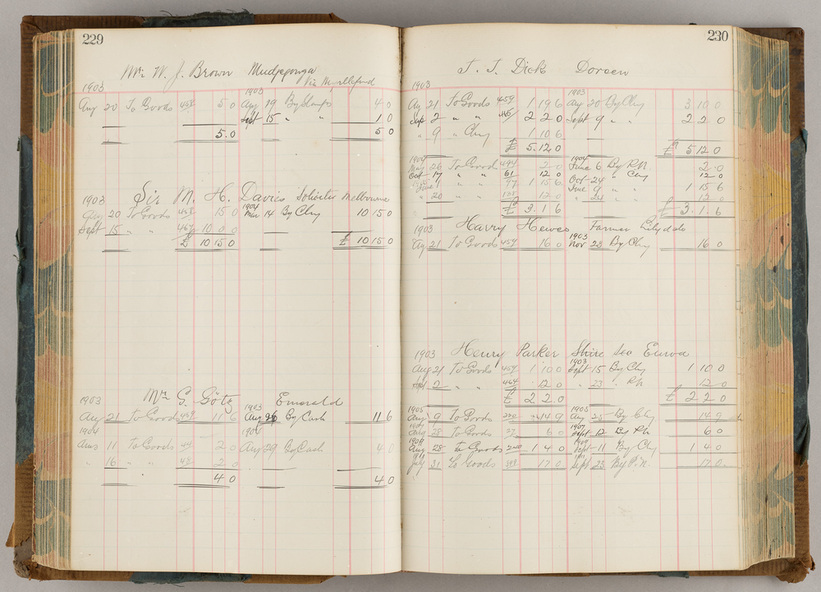 229
Mr W. J. Brown Mudgegonga
Via Myrtleford
1903 1903
Aug 20 To Goods 5 0 Aug 29 By Stamps 4 0
Sept 15 " " 1 0
5.0 5 0
1903 Sir M. H. Davies Solicitor Melbourne
Aug 20 To Goods 15 0 1904 Mar 14 By Chq 10 15 0
Sept 15 " " 10 0 0
£ 10 15 0 £ 10 15 0
1903 Mr G. Götz Emerald
Aug 21 To Goods 11 6 1903 Aug 26 By Cash 11 6
1904 1904
Aug 11 To Goods 2 0 Aug 29 By Cash 4 0
" 16 " " 2 0
4 0 4 0
230
J. T. Dick Doreen
1903 1903
Aug 21 To Goods 459 1 19 6 Aug 20 By Chq 3 10 0
Sept 2 " " 2 2 0 Sept 9 " " 2 2 0
" 9 " Chq 1 10 6
£ 5 12 0 £ 5 12 0
1904 1904
26 To Goods 2 0 June 6 By P.N. 2 0
Oct 17 " " 61 12 0 Oct 24 " Chq 12 0
June 1 " " 77 1 15 6 June 9 " " 1 15 6
" 20 " " 12 0 " 24 " " 12 0
£ 3 1 6 £ 3 1 6
1903 Harry Hewes Farmer Lilydale
Aug 21 To Goods 459 16 0 1903 Nov 23 By Chq 16 0
1903 Henry Parker Shire Sec Euroa
1903
Aug 21 To Goods 459 1 10 0 Sept 15 By Chq 1 10 0
Sept 2 " " 464 12 0 " 23 " P.N. 12 0
£ 2 2 0 £ 2 2 0
Aug 9 To Goods 14 9 By Chq 14 9
28 To Goods 6 0 Sept 12 By P.N. 6 0
Aug 28 To Goods 1 4 0 Sept 11 By Chq 1 4 0
July 31 To Goods 17 0 Sept 23 By P.N. 17 0